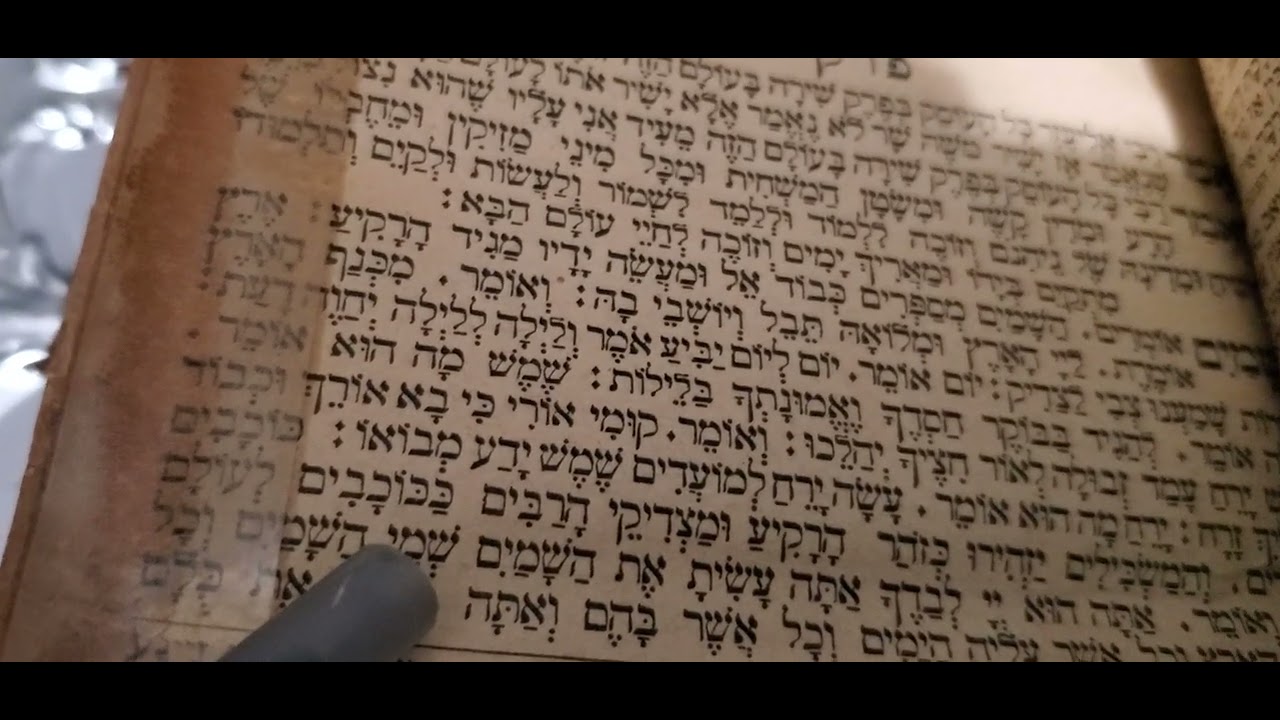 פרק
אליעזר כל העוסק בפרק שירה בעולם הזה
שנאמר אז ישיר משה שר לא נאמר אלא ישיר אתו לעולם
רבי כל העוסק בפרק שירה בעולם הזה מעיד אני עליו שהוא
הרע ומדין קשה ומשטן המשחית ומכל מיני מזיקין של
ומדינה של גיהנם וזוכה ללמוד וללמד לשמור ולעשות ולקיים ותלמודו
מתקיים בידו ומאריך ימים וזוכה לחיי עולם הבא:
אומרים. השמים מספרים כבוד אל ומעשה ידיו מגיד הרקיע: ארץ
אומרת. ליי הארץ ומלואה תבל ויושבי בה: ואומר. מכנף הארץ
שמענו צבי לצדיק: יום אומר. יום ליום יביע אמר ולילה ללילה יחוה דעת:
אומר. להגיד בבוקר חסדך ואמונתך בלילות: שמש מה הוא אומר.
ירח עמד זבולה לאור חציך יהלכו: ואומר. קומי אורי כי בא אורך וכבוד
זרח: ירח מה הוא אומר. עשה ירח למועדים שמש ידע מבואו: כוכבים
והמשכילים יזהירו כזהר הרקיע ומצדיקי הרבים ככוכבים לעולם
ואומר. אתה הוא יי לבדך אתה עשית את השמים שמי השמים וכל
וכל אשר עליה הימים וכל אשר בהם ואתה את כלם